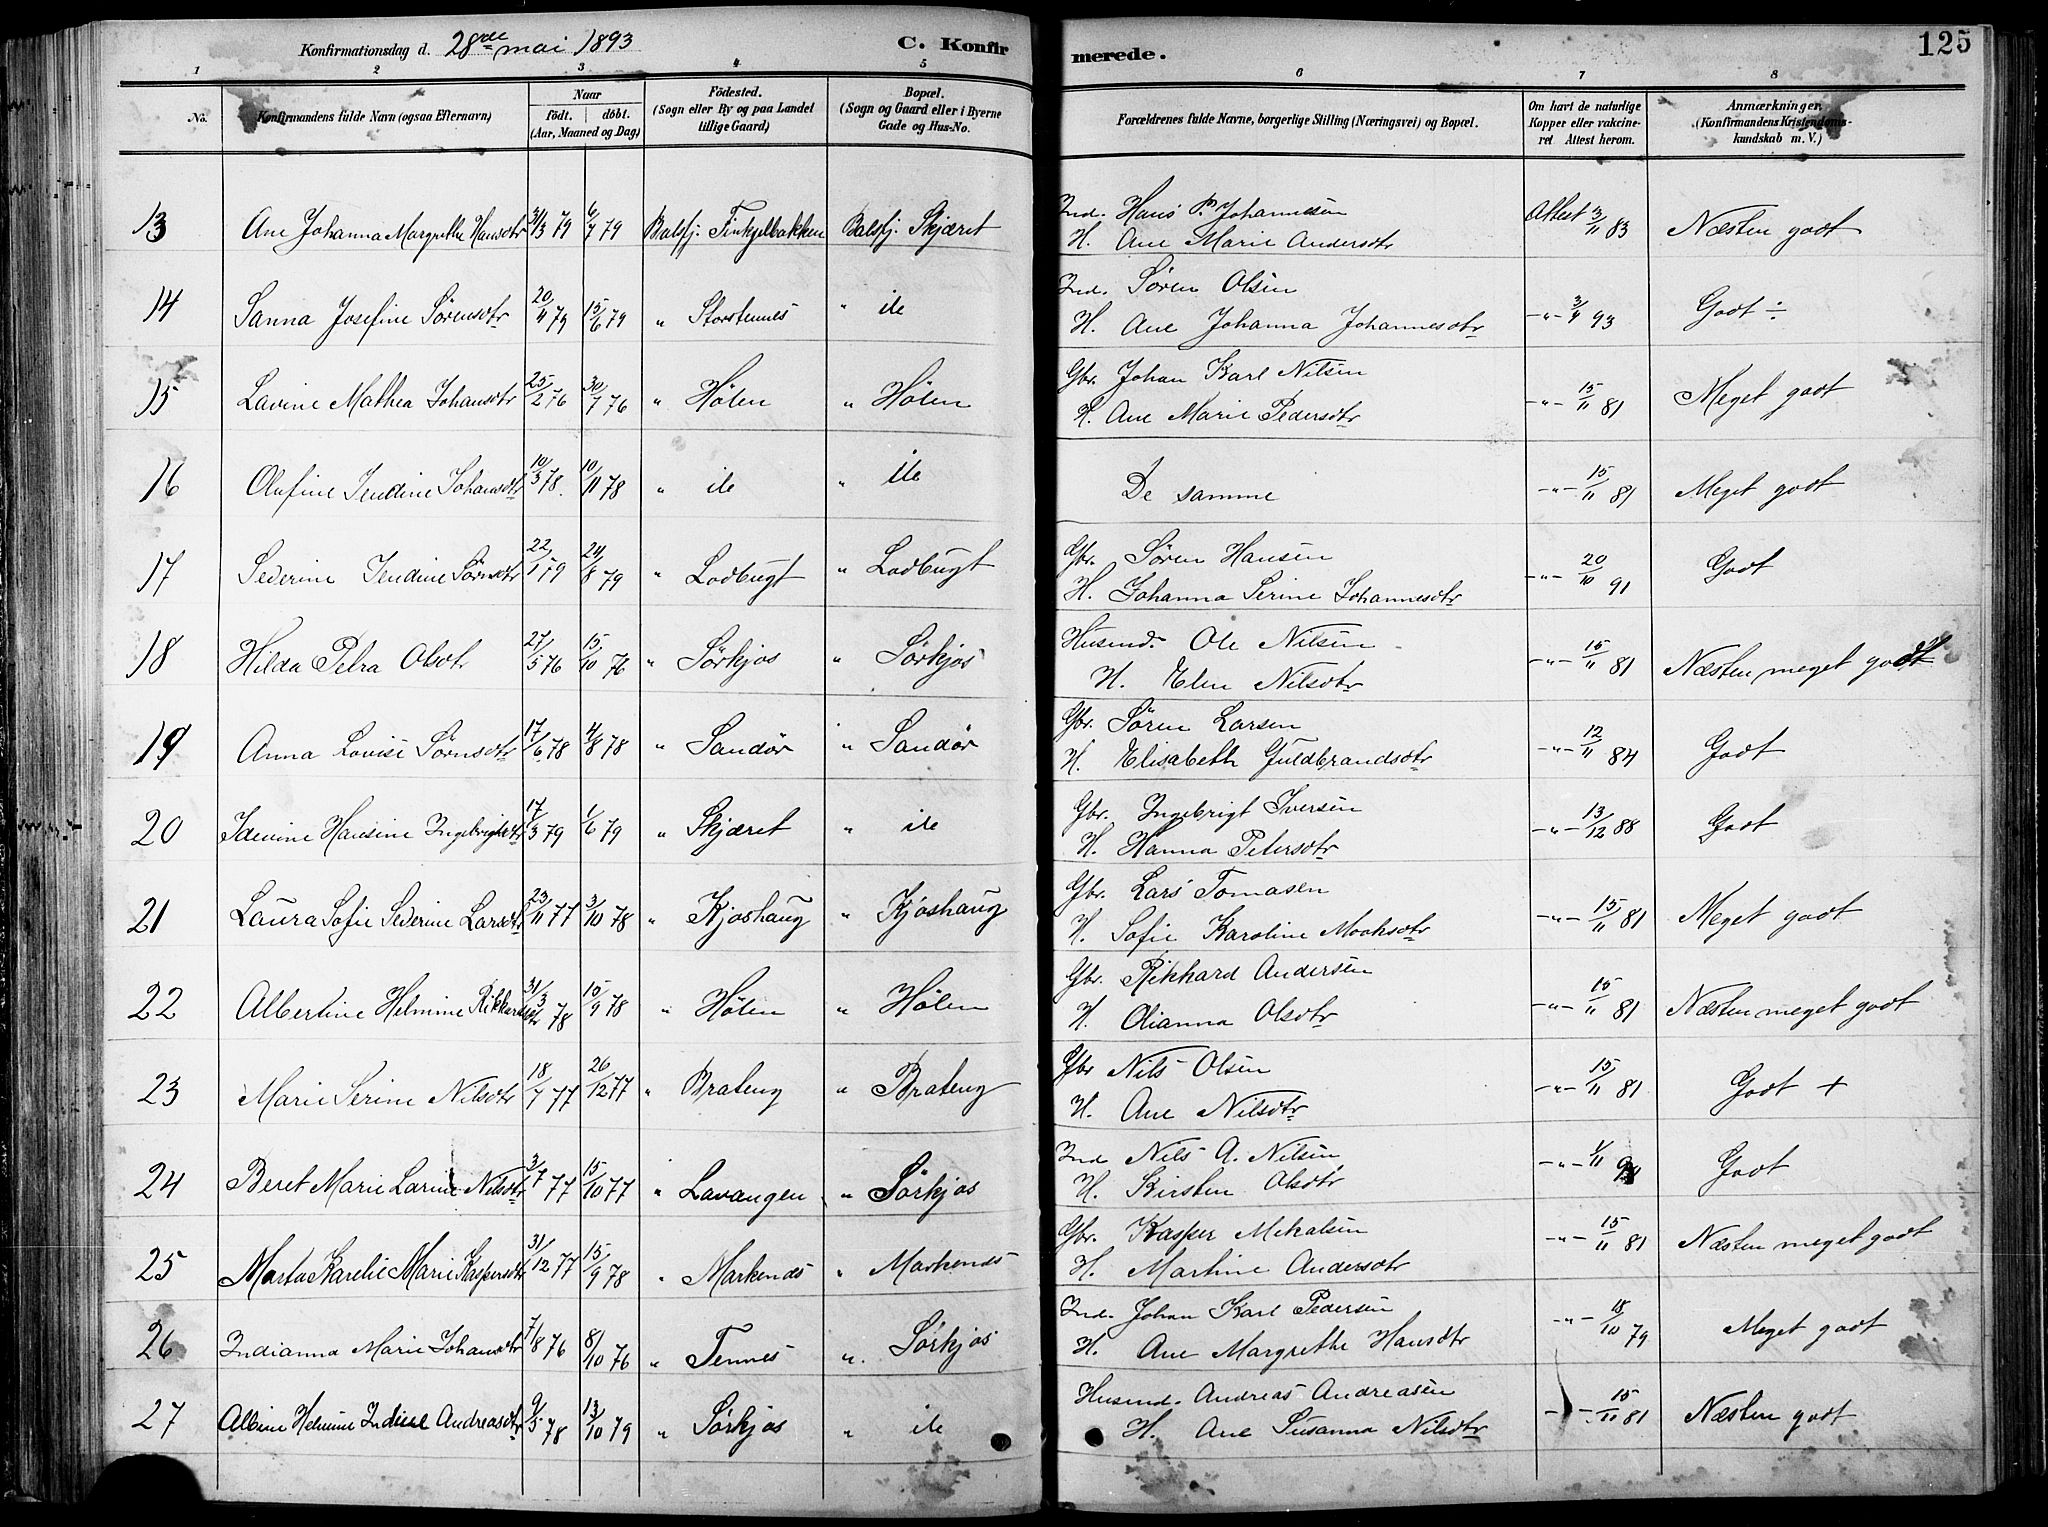 Konfirmationsdag d. 28de mai 1893 C. Konfir merede. 125
1 2 3 4 5 6 7 8
No. Konfirmandens fulde Navn (ogsaa Efternavn) Naar født. døbt. (Aar, Maaned og Dag) Födested. (Sogn eller By og paa Landet tillige Gaard) Bopæl. (Sogn og Gaard eller i Byerne Gade og Hus-No. Forældrenes fulde Navne, borgerlige Stilling (Næringsvei) og Bopæl. Om havt de naturlige Kopper eller vakcineret Attest herom. Anmærkninger. (Konfirmandens Kristendomskundskab m. V.)
13 Ane Johanna Margrethe Hansdtr 31/3 79 6/7 79 Balsfj. Balsfj. Skjæret Ind. Hans P. Johannesen Attest 3/11 83 Næsten godt
H. Ane Marie Andersdtr
14 Sanna Josefine Sørensdtr 20/4 79 15/6 79 " Storstennes " ile Ind. Søren Olsen -"- 3/4 93 Godt ÷
H. Ane Johanna Johannesdtr
15 Lavine Mathea Johansdtr 25/2 76 30/7 76 " Hølen " Hølen Gbr. Johan Karl Nilsen -"- 15/11 81 Meget godt
H. Ane Marie Pedersdtr
16 Olufine Jendine Johansdtr 10/3 78. 10/11 78 " ile " ile De samme -"- 15/11 81 Meget godt
17 Sederine Jendine Sørnsdtr 22/1 79 24/8 79 " Lodbugt " Lodbugt Gbr. Søren Hansen -"- 20/10 91 Godt
H. Johanna Serine Johannesdtr
18 Hilda Petra Olsdtr 27/5 76 15/10 76 " Sørkjos " Sørkjos Husmd. Ole Nilsen -"- 15/11 81 Næsten meget godt
H. Elen Nilsdtr
19 Anna Lovise Sørnsdtr 17/6 78 4/8 78 " Sandør " Sandør Gbr. Søren Larsen -"- 12/11 84 Godt
H. Elisabeth Guldbrandsdtr
20 Idenine Hansine Ingebrigtsdtr 17/3 79 1/6 79 " Skjæret " ile Gbr. Ingebrigt Iversen -"- 13/12 88 Godt
H. Hanna Petersdtr
21 Laura Sofie Sederine Larsdtr 23/11 77 3/10 78 " Kjoshaug " Kjoshaug Gbr. Lars Tomasen -"- 15/11 81 Meget godt
H. Sofie Karoline Mooksdtr
22 Albertine Helmine Rikkardsdtr 31/3 78 15/9 78 " Hølen " Hølen Gbr. Rikhard Andersen -"- 15/11 81 Næsten meget godt
H. Olianna Olsdtr
23 Marie Serine Nilsdtr 18/7 77 26/12 77 " Brateng " Brateng Gbr Nils Olsen -"- 15/11 81 Godt +
H. Ane Nilsdtr
24 Beret Marie Larine Nilsdtr 3/7 77 15/10 77 " Lavangen " Sørkjos Ind Nils A. Nilsen -"- 1/11 Godt
H. Kirsten Olsdtr
25 Marta Karelie Marie Kaspersdtr 31/12 77 15/9 78 " Markenes " Markenes Gbr. Kasper Mikalsen -"- 15/11 81 Næsten meget godt
H. Martine Andersdtr
26 Indianna Marie Johansdtr 7/8 76 8/10 76 " Tennes " Sørkjos Ind. Johan Karl Pedersen -"- 18/10 79 Meget godt
H. Ane Margrethe Hansdtr
27 Albine Helmine Indine Andreasdtr 9/5 78 13/10 79 " Sørkjos " ile Husmd. Andreas Andreasen -"- 15/11 81 Næsten godt
H. Ane Susanna Nilsdtr